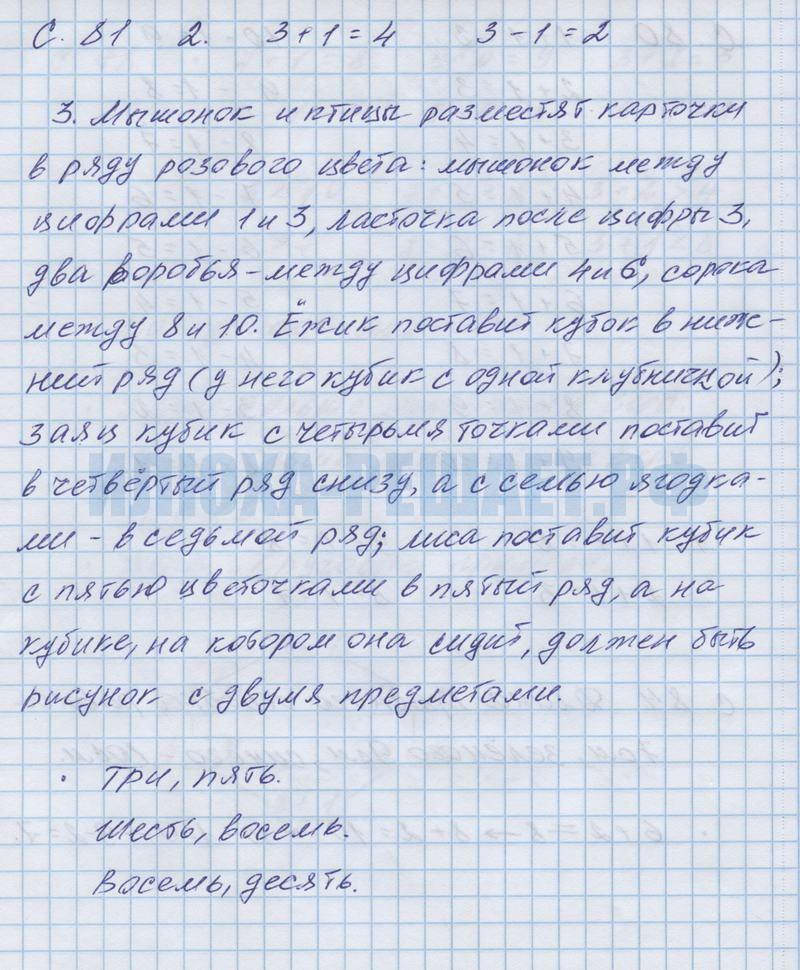 С. 81 2. 3+1=4 3-1=2
3. Мышонок и птицы разместят карточки
в ряду розового цвета: мышонок между
цифрами 1 и 3, ласточка после цифры 3,
два воробья - между цифрами 4 и 6, сорока
между 8 и 10. Ёжик поставит кубок в ниж-
ний ряд (у него кубик с одной клубничкой);
заяц кубик с четырьмя точками поставит
в четвёртый ряд снизу, а с семью ягодка-
ми - в седьмой ряд; лиса поставит кубик
с пятью цветочками в пятый ряд, а на
кубике, на котором она сидит, должен быть
рисунок с двумя предметами.
. Три, пять.
Шесть, восемь.
Восемь, десять.
ИЛЮХА-РЕШАЕТ.РФ